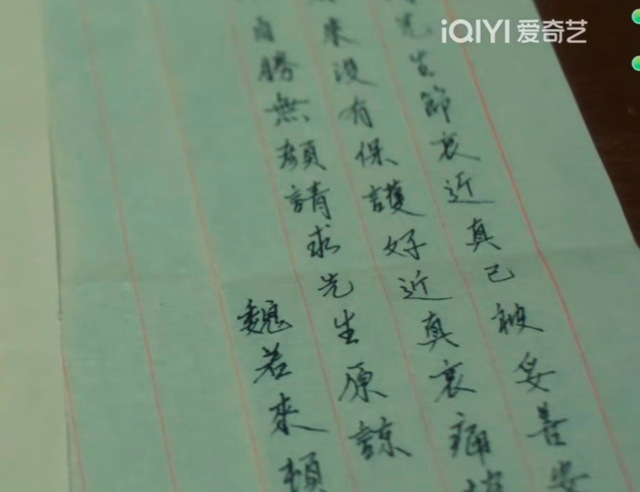 iQIYI 爱奇艺
先生節哀近真已被妥善安
來没有保護好近真哀痛
自勝無顏請求先生原諒
魏若來頓